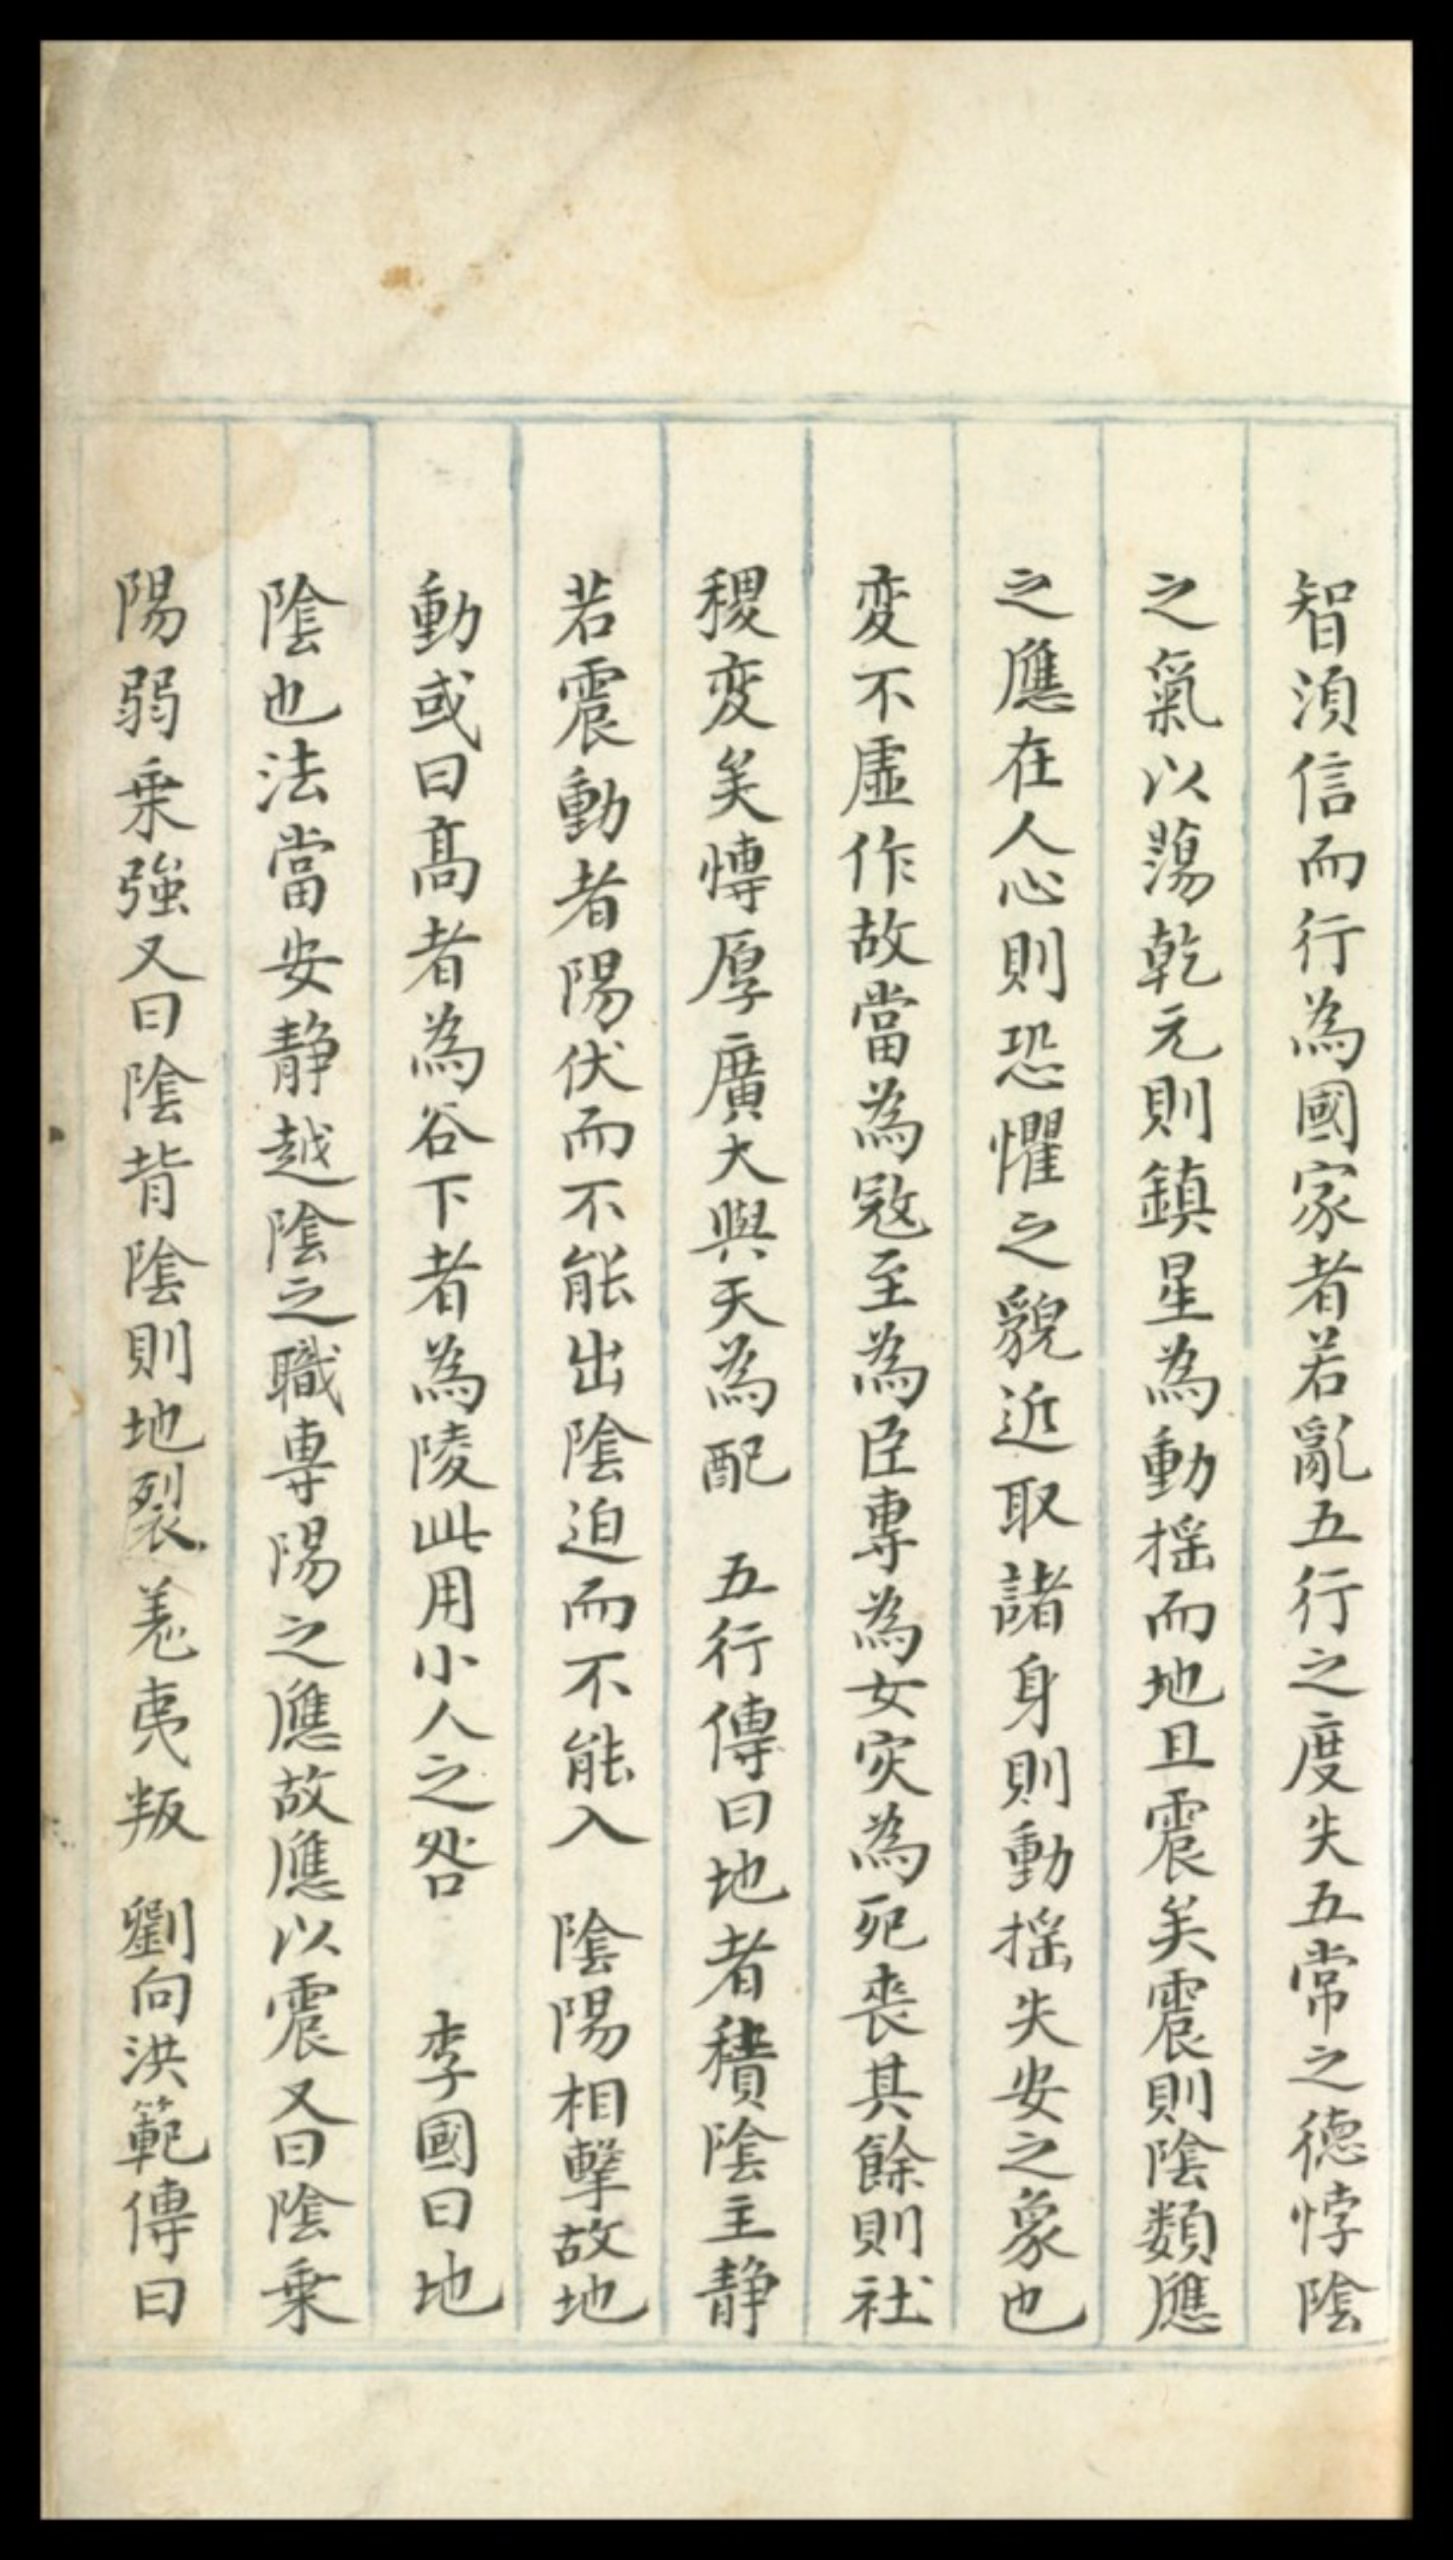 智湏信而行為國家者若亂五行之度失五常之德悖陰
之氣以蕩乾元則鎮星為動搖而地且震矣震則陰類應
之應在人心則恐懼之貌近取諸身則動搖失安之象也
変不虛作故當為冦至為臣專為女灾為死喪其餘則社
稷変矣慱厚廣大與天為配　五行傳曰地者積陰主静
若震動者陽伏而不能出陰迫而不能入　陰陽相擊故地
動或曰髙者為谷下者為陵此用小人之咎　李國曰地
陰也法當安静越陰之職専陽之應故應以震又曰陰乗
陽弱乗強又曰陰背陰則地裂羌夷叛　劉向洪範傳曰